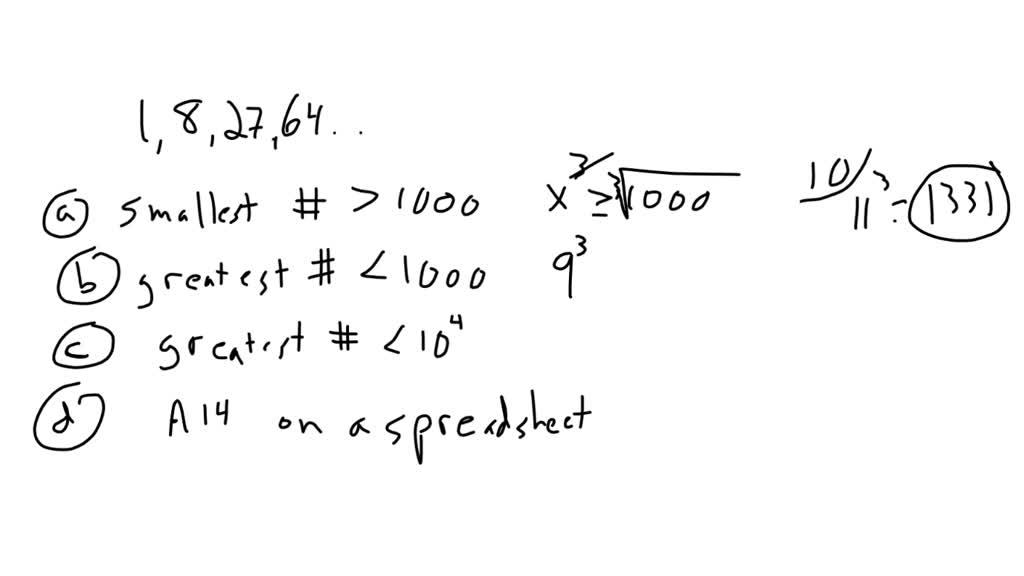 1, 8, 27, 64...
(a) smallest # > 1000 x³ ≥ ∛1000 10 11³ = 1331
(b) greatest # < 1000 9³
(c) greatest # < 10⁴
(d) A14 on a spreadsheet